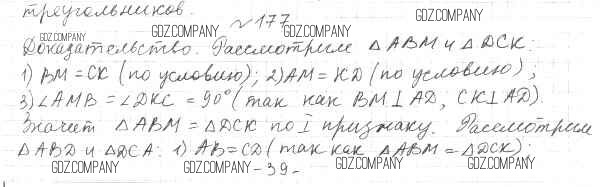 треугольников.
№177 GDZ.COMPANY
GDZ.COMPANY GDZ.COMPANY GDZ.COMPANY GDZ.COMPANY
Доказательство. Рассмотрим △ABM и △DCK:
1) BM = CK (по условию); 2) AM = KD (по условию);
3) ∠AMB = ∠DKC = 90° (так как BM⊥AD, CK⊥AD).
Значит △ABM = △DCK по I признаку. Рассмотрим
△ABD и △DCA: 1) AB = CD (так как △ABM = △DCK);
GDZ.COMPANY GDZ.COMPANY - 39 - GDZ.COMPANY GDZ.COMPANY